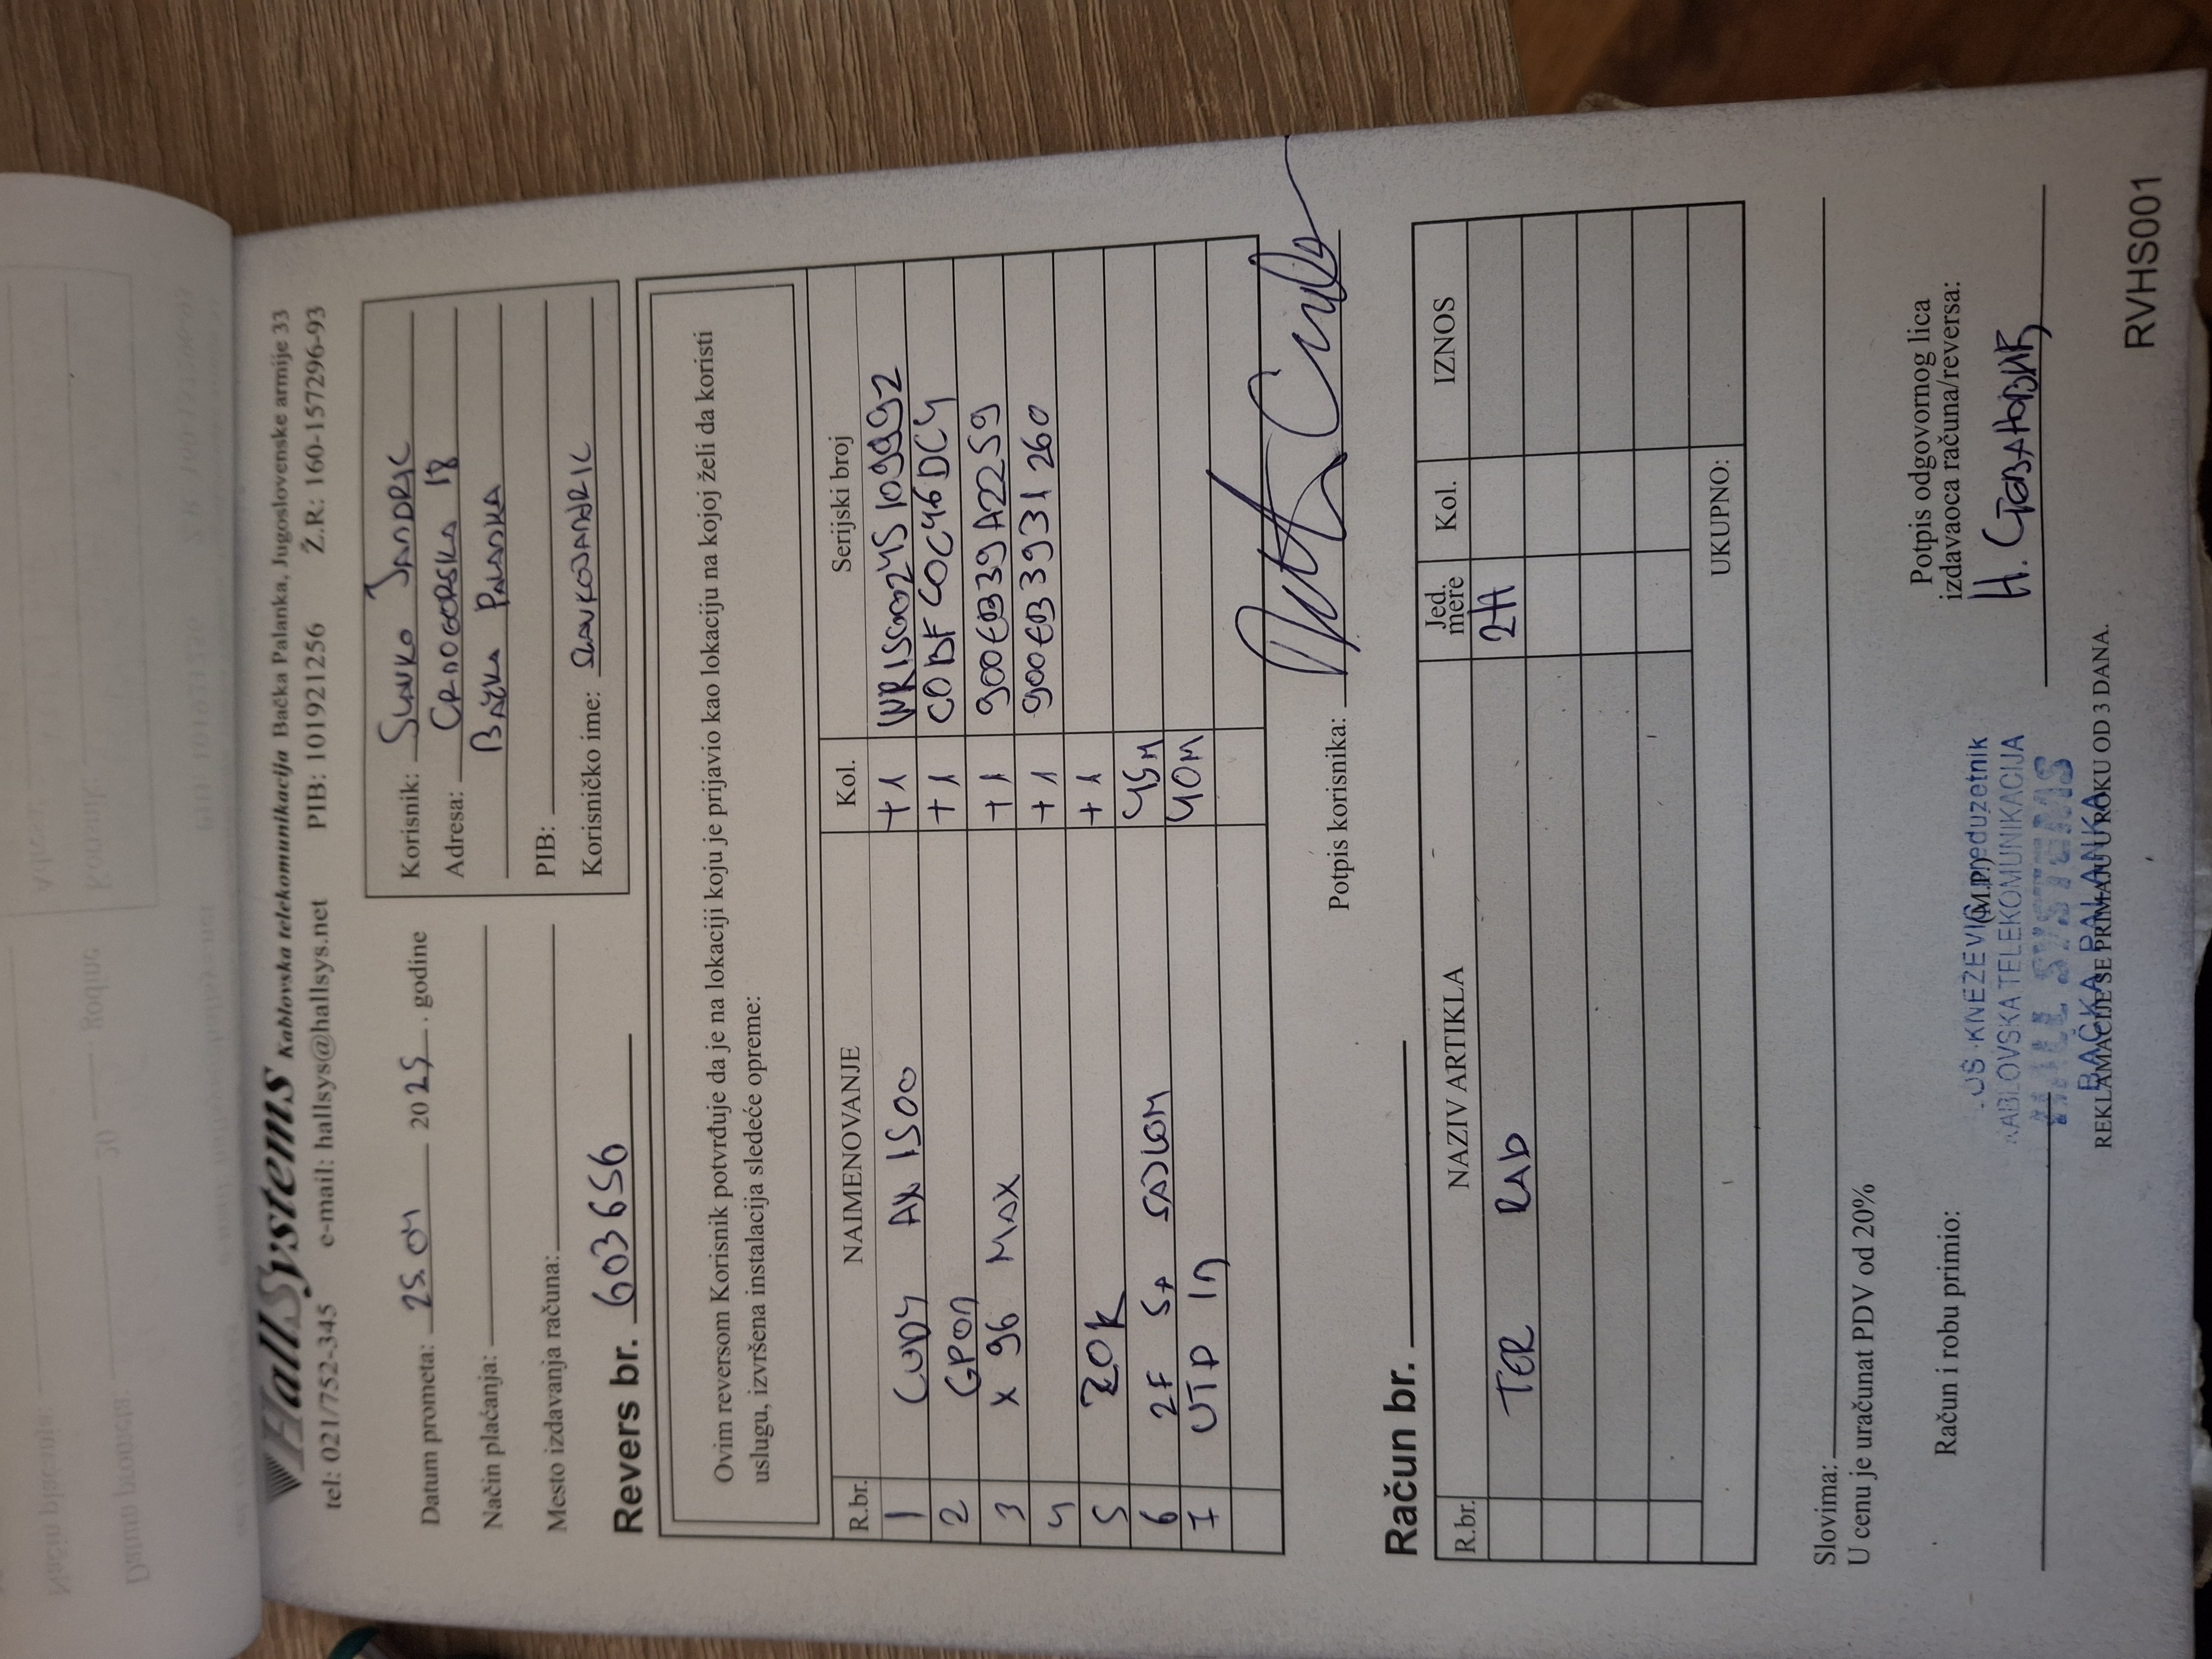 HallSystems Kablovska telekomunikacija Bačka Palanka, Jugoslovenske armije 33
tel: 021/752-345 e-mail: hallsys@hallsys.net PIB: 101921256 Ž.R.: 160-157296-93
Datum prometa: 25.04 2025. godine
Način plaćanja:
Mesto izdavanja računa:
Korisnik: SLAVKO JANDRIC
Adresa: CRNOGORSKA 18
BAČKA PALANKA
PIB:
Korisničko ime: SLAVKOJANDRIC
Revers br. 6036556
Ovim reversom Korisnik potvrđuje da je na lokaciji koju je prijavio kao lokaciju na kojoj želi da koristi
uslugu, izvršena instalacija sledeće opreme:
R.br. NAIMENOVANJE Kol. Serijski broj
1 CUDY AX 1500 +1
2 GPON +1 C0BFC0C446DC4
3 X 96 MAX +1 900EB39A2259
4 +1 900EB3931260
5 ZOK +1
6 2F SA SAJLOM 45M
7 UTP IN 40M
Potpis korisnika:
Račun br.
R.br. NAZIV ARTIKLA Jed. mere Kol. IZNOS
TER RAD 2H
UKUPNO:
Slovima:
U cenu je uračunat PDV od 20%
Račun i robu primio:
Potpis odgovornog lica
izdavaoca računa/reversa:
(M.P.)
KNEZEVIC preduzetnik
KABLOVSKA TELEKOMUNIKACIJA
HALL SYSTEMS
BAČKA PALANKA
REKLAMACIJE SE PRIMAJU U ROKU OD 3 DANA.
RVHS001